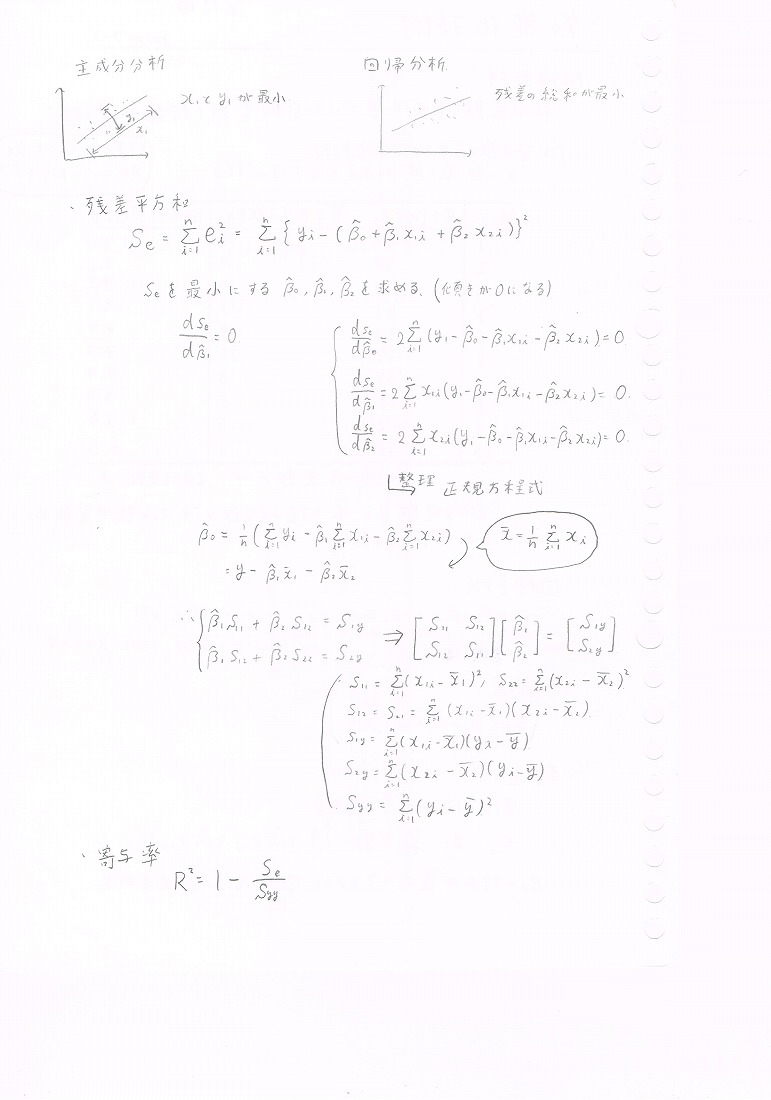 主成分分析
x₁とy₁が最小
y₁
x₁
回帰分析
残差の総和が最小
・残差平方和
Se = Σ[i=1→n] eᵢ² = Σ[i=1→n] { yᵢ - ( β̂₀ + β̂₁x₁ᵢ + β̂₂x₂ᵢ ) }²
Seを最小にする β̂₀, β̂₁, β̂₂を求める、(傾きが0になる)
dSe/dβ̂₁ = 0
dSe/dβ̂₀ = 2Σ[i=1→n] (yᵢ - β̂₀ - β̂₁x₁ᵢ - β̂₂x₂ᵢ) = 0
dSe/dβ̂₁ = 2Σ[i=1→n] x₁ᵢ(yᵢ - β̂₀ - β̂₁x₁ᵢ - β̂₂x₂ᵢ) = 0.
dSe/dβ̂₂ = 2Σ[i=1→n] x₂ᵢ(yᵢ - β̂₀ - β̂₁x₁ᵢ - β̂₂x₂ᵢ) = 0.
整理 正規方程式
β̂₀ = 1/n (Σ[i=1→n] yᵢ - β̂₁Σ[i=1→n] x₁ᵢ - β̂₂Σ[i=1→n] x₂ᵢ)
x̄ = 1/n Σ[i=1→n] xᵢ
= y - β̂₁x̄₁ - β̂₂x̄₂
∴ { β̂₁S₁₁ + β̂₂S₁₂ = S₁y ⇒ [S₁₁ S₁₂] [β̂₁] = [S₁y]
β̂₁S₁₂ + β̂₂S₂₂ = S₂y [S₁₂ S₁₁] [β̂₂] [S₂y]
S₁₁ = Σ[i=1→n] (x₁ᵢ - x̄₁)², S₂₂ = Σ[i=1→n] (x₂ᵢ - x̄₂)²
S₁₂ = S₂₁ = Σ[i=1→n] (x₁ᵢ - x̄₁)(x₂ᵢ - x̄₂)
S₁y = Σ[i=1→n] (x₁ᵢ - x̄₁)(yᵢ - ȳ)
S₂y = Σ[i=1→n] (x₂ᵢ - x̄₂)(yᵢ - ȳ)
Syy = Σ[i=1→n] (yᵢ - ȳ)²
・寄与率
R² = 1 - Se/Syy